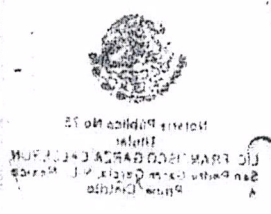 Notaria Pública No 75
Titular
LIC FRANCISCO GARZA CALDERON
San Pedro Garza García, N. L. Mexico
Primer Distrito